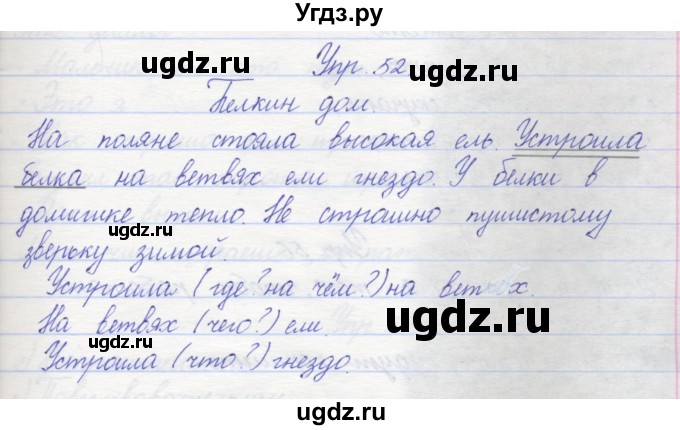 Угдз.ру
ugdz.ru ugdz.ru
Упр. 52
Белкин дом
На поляне стояла высокая ель. Устроила
белка на ветвях ели гнездо. У белки в
ugdz.ru
домишке тепло. Не страшно пушистому
ugdz.ru
зверьку зимой
Устроила (где? на чём?) на ветвях.
На ветвях (чего?) ели.
ugdz.ru
Устроила (что?) гнездо.
ugdz.ru
ugdz.ru